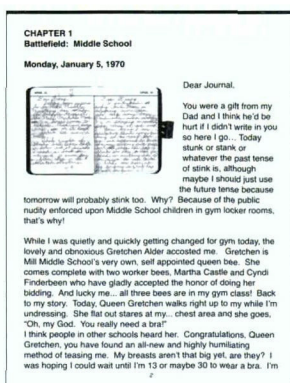 CHAPTER 1
Battlefield: Middle School
Monday, January 5, 1970
Dear Journal,
You were a gift from my
Dad and I think he'd be
hurt if I didn't write in you
so here I go... Today
stunk or stank or
whatever the past tense
of stink is, although
maybe I should just use
the future tense because
tomorrow will probably stink too. Why? Because of the public
nudity enforced upon Middle School children in gym locker rooms,
that's why!
While I was quietly and quickly getting changed for gym today, the
lovely and obnoxious Gretchen Alder accosted me. Gretchen is
Mill Middle School's very own, self appointed queen bee. She
comes complete with two worker bees, Martha Castle and Cyndi
Finderbeen who have gladly accepted the honor of doing her
bidding. And lucky me... all three bees are in my gym class! Back
to my story. Today, Queen Gretchen walks right up to my while I'm
undressing. She flat out stares at my... chest area and she goes,
"Oh, my God. You really need a bra!"
I think people in other schools heard her. Congratulations, Queen
Gretchen, you have found an all-new and highly humiliating
method of teasing me. My breasts aren't that big yet, are they? I
was hoping I could wait until I'm 13 or maybe 30 to wear a bra. I'm
2